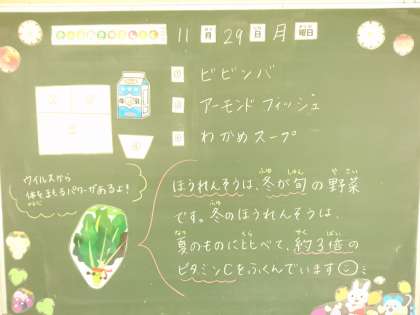 11月29日月曜日
ビビンバ
アーモンドフィッシュ
わかめスープ
ウイルスから
体をまもるパワーがあるよ!
ほうれんそうは、冬が旬の野菜
です。冬のほうれんそうは、
夏のものにくらべて、約3倍の
ビタミンCをふくんでいます